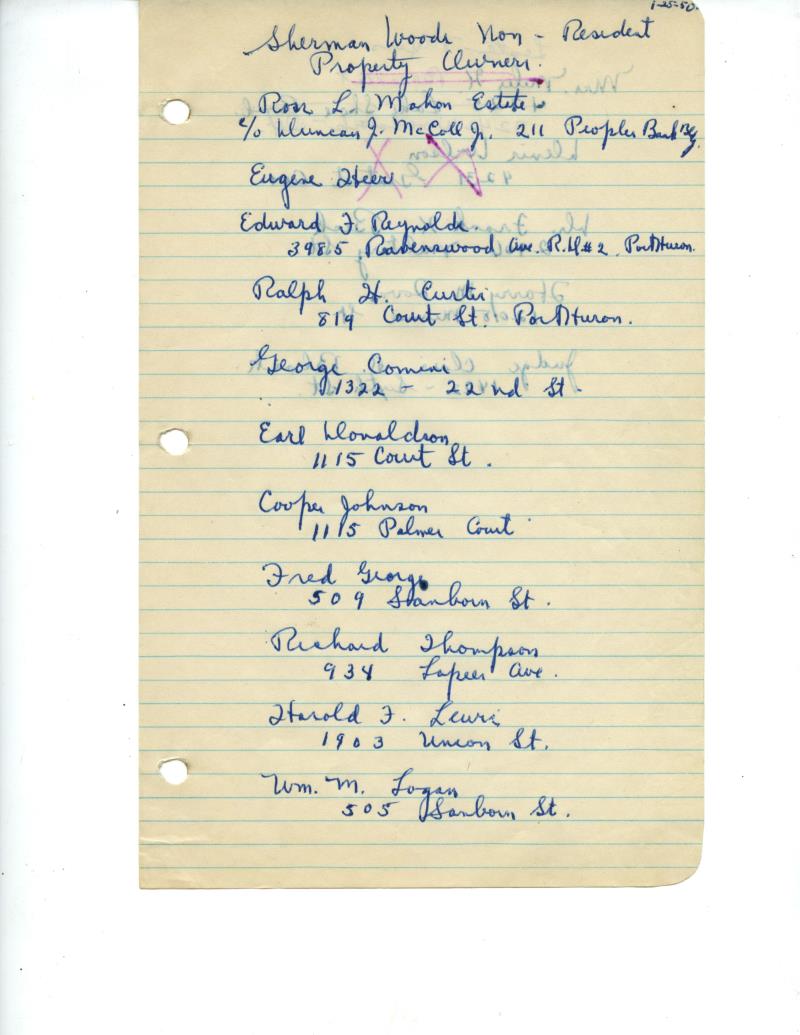 1-25-50.
Sherman Woods Non - Resident
Property Owners.
Ross L. Mahon Estate
c/o Duncan J. McColl Jr. 211 Peoples Bank Blg.
Eugene Heer
Edward F. Reynolds
3985 Ravenswood Ave. R.D#2. Port Huron.
Ralph H. Curtis
819 Court St. Port Huron.
George Comini
1322 - 22nd St.
Earl Donaldson
1115 Court St.
Cooper Johnson
1115 Palmer Court
Fred George
509 Stanborn St.
Richard Thompson
934 Lapeer Ave.
Harold F. Lewis
1903 Union St.
Wm. M. Logan
505 Sanborn St.